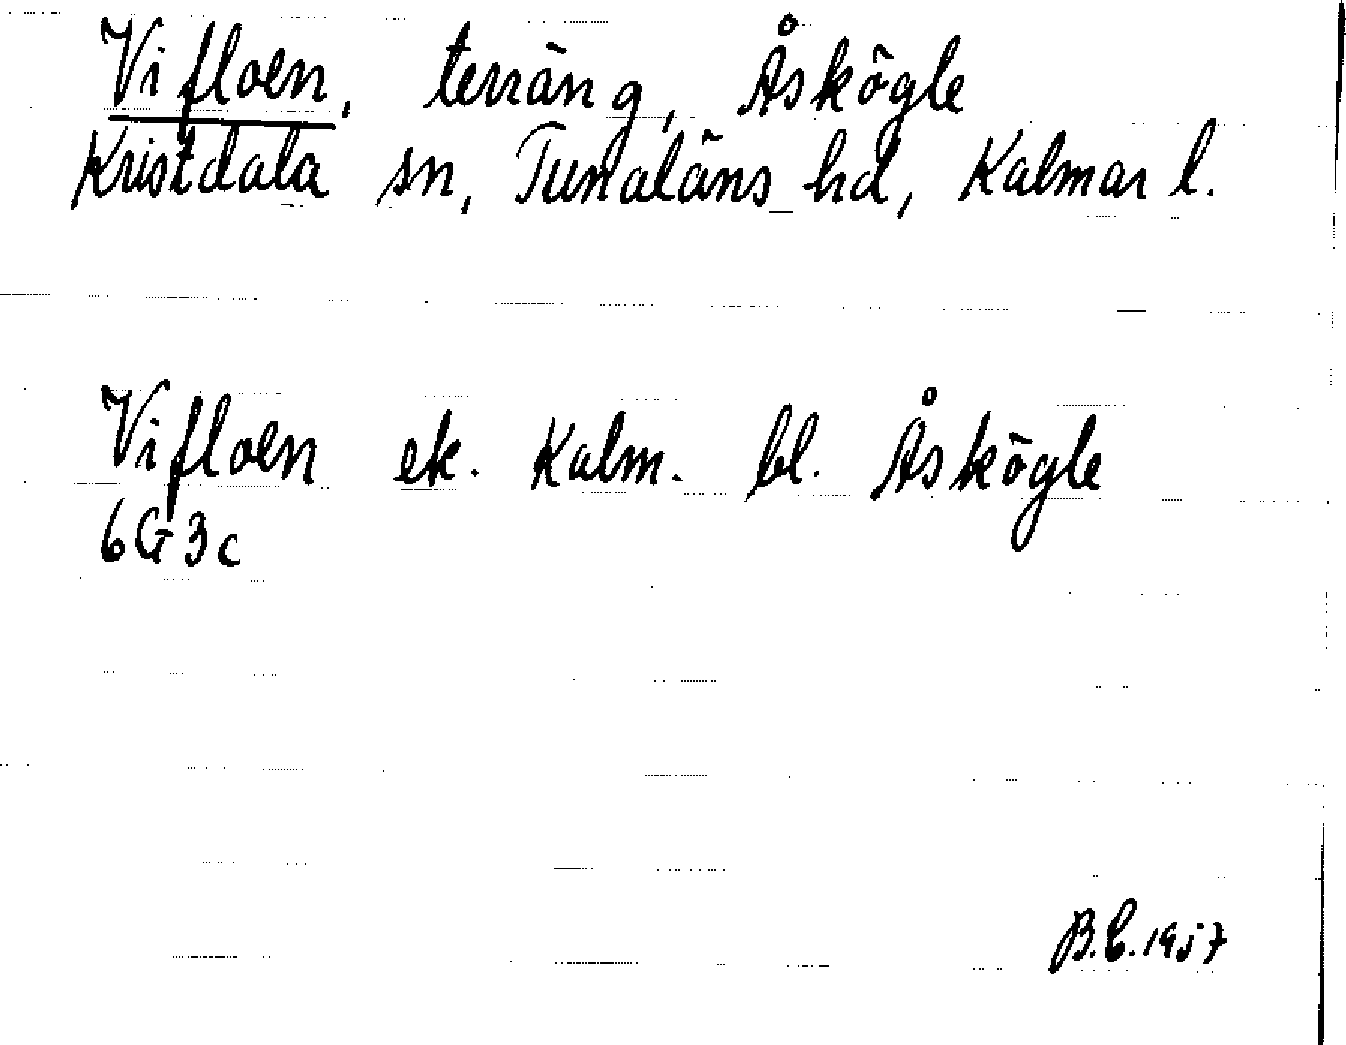 Vifloen, terräng, Åskögle
Kristdala sn, Tunaläns hd, Kalmar l.
Vifloen ek. Kalm. bl. Åskögle
6G3c
B.C. 1957